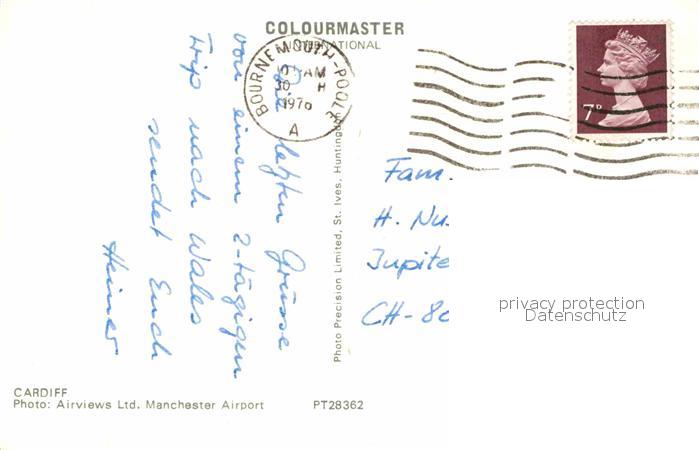 COLOURMASTER
INTERNATIONAL
BOURNEMOUTH-POOLE
AM
30
1976
A
7P
Die letzten Grüsse
von einem 2-tägigen
Trip nach Wales
sendet Euch
Heiner
Photo Precision Limited, St. Ives, Huntingdon
Fam.
H. Nu.
Jupite
CH-80
privacy protection
Datenschutz
CARDIFF
Photo: Airviews Ltd. Manchester Airport PT28362